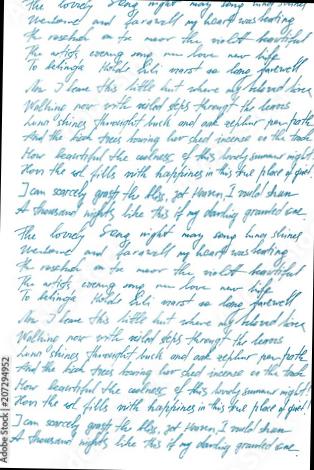 The lovely Song night many song shines
and farewell my heart was beating
the rosebush on the moor the violet beautiful
The artist evening song me love new life
To belinda Holds Lili worst so long farewell
Now I leave this little hut where my beloved lives
Walking now with veiled steps through the leaves
Luna shines through bush and oak zephyr path
And the birch trees bowing low shed incense on the track
How beautiful the coolness of this lovely summer night!
How the soul fills with happiness in this true place of quiet!
I can scarcely grasp the bliss, yet Heaven, I would shun
A thousand nights like this if my darling granted one.
The lovely Song night many song shines
and farewell my heart was beating
the rosebush on the moor the violet beautiful
The artist evening song me love new life
To belinda Holds Lili worst so long farewell
Now I leave this little hut where my beloved lives
Walking now with veiled steps through the leaves
Luna shines through bush and oak zephyr path
And the birch trees bowing low shed incense on the track
How beautiful the coolness of this lovely summer night!
How the soul fills with happiness in this true place of quiet!
I can scarcely grasp the bliss, yet Heaven, I would shun
A thousand nights like this if my darling granted one.
Adobe Stock | #207294952